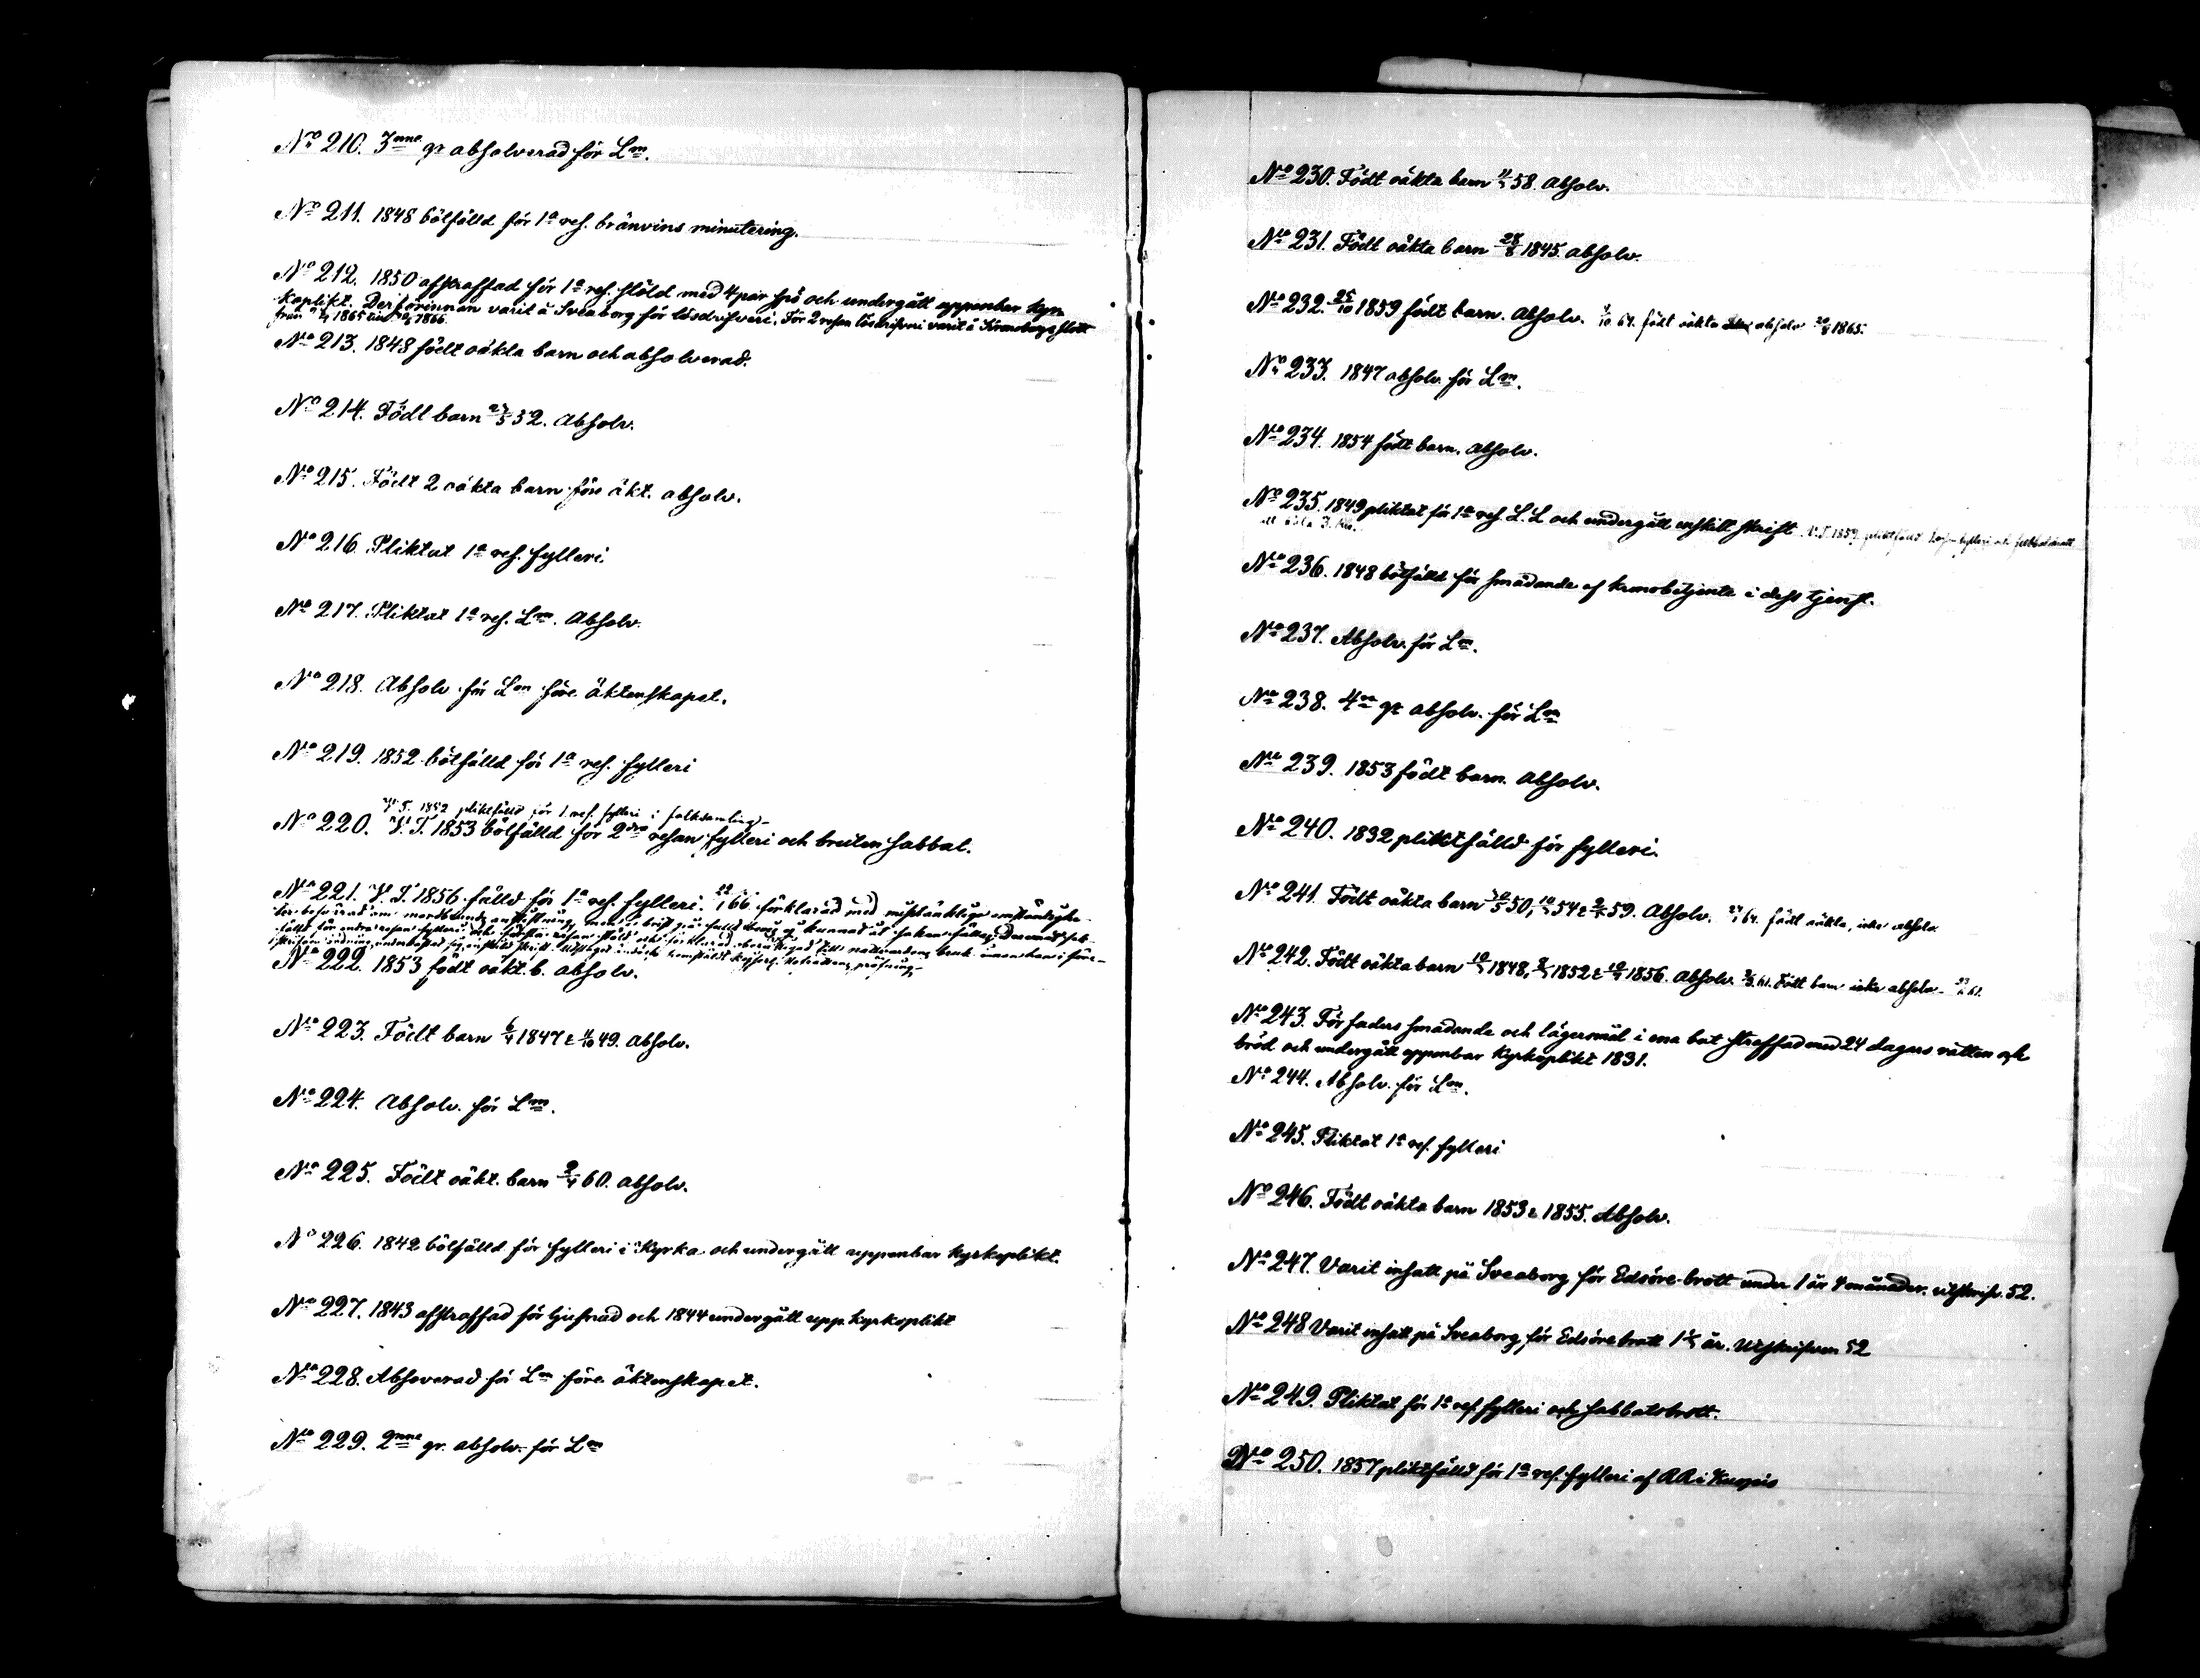 No 210. 3nne gr absolverad för Lm.
No 211. 1848 bötfälld för 1a res. bränvins minutering.
No 212. 1850 afstraffad för 1a res. stöld med 4 par spö och undergått uppenbar kyr-
koplikt. Derförinnan varit å Sveaborg för lösdrifveri. För 2 resan lösdrifveri varit å
från 1865 till 1866.
No 213. 1848 födt oäkta barn och absolverad.
No 214. Födt barn 52. Absolv.
No 215. Födt 2 oäkta barn före äkt. absolv.
No 216. Pliktat 1a res. fylleri.
No 217. Pliktat 1a res. Lm. Absolv.
No 218. Absolv för Lm före äktenskapet.
No 219. 1852 bötfälld för 1a res. fylleri
V. T. 1852 pliktfälld för 1 res. fylleri i folksamling
No 220. V. T. 1853 bötfälld för 2dra resan fylleri och bruten sabbat.
No 221. V. T. 1856 fälld för 1a res. fylleri. 66 förklarad med misstänkliga omständighe-
fälld för andra resan fylleri och första resan stöld och förklarad
No 222. 1853 födt oäkt. b. absolv.
No 223. Födt barn 6/4 1847 & 49. absolv.
No 224. Absolv. för Lm.
No 225. Födt oäkt. barn 2/4 60. absolv.
No 226. 1842 bötfälld för fylleri i Kyrka och undergått uppenbar kyrkoplikt.
No 227. 1843 afstraffad för tjufnad och 1844 undergått upp. kyrkoplikt
No 228. Absoverad för Lm före äktenskapet.
No 229. 2nne gr. absolv. för Lm
No 230. Födt oäkta barn 58. Absolv.
No 231. Födt oäkta barn 28/8 1845. absolv.
No 232. 25/10 1859 födt barn. Absolv. 64. födt oäkta absolv 1865.
No 233. 1847 absolv. för Lm.
No 234. 1854 födt barn. Absolv.
No 235. 1849 pliktat för 1a res. L. L och undergått enskilt skrift
No 236. 1848 bötfälld för smädande af kronobetjente i dess tjenst.
No 237. Absolv. för Lm.
No 238. 4ra gr absolv. för Lm
No 239. 1853 födt barn. Absolv.
No 240. 1832 pliktfälld för fylleri.
No 241. Födt oäkta barn 50, 54 & 59. Absolv. 64. födt oäkta, icke absolv
No 242. Födt oäkta barn 1848, 1852 & 1856. Absolv. 61. Födt barn icke absolv. 61.
No 243. För faders smädande och lägersmål i ena bot straffad med 24 dagars vatten och
bröd och undergått uppenbar kyrkoplikt 1831.
No 244. Absolv. för Lm.
No 245. Pliktat 1a res. fylleri
No 246. Födt oäkta barn 1853 & 1855. Absolv.
No 247. Varit insatt på Sveaborg för Edsöre-brott under 1 år 4 månader. utskrifv. 52.
No 248 Varit insatt på Sveaborg för Edsöre brott 1 år. Utskrifven 52
No 249. Pliktat för 1a res. fylleri och sabbatsbrott.
No 250. 1857 pliktfälld för 1a res. fylleri af RR i Kuopio